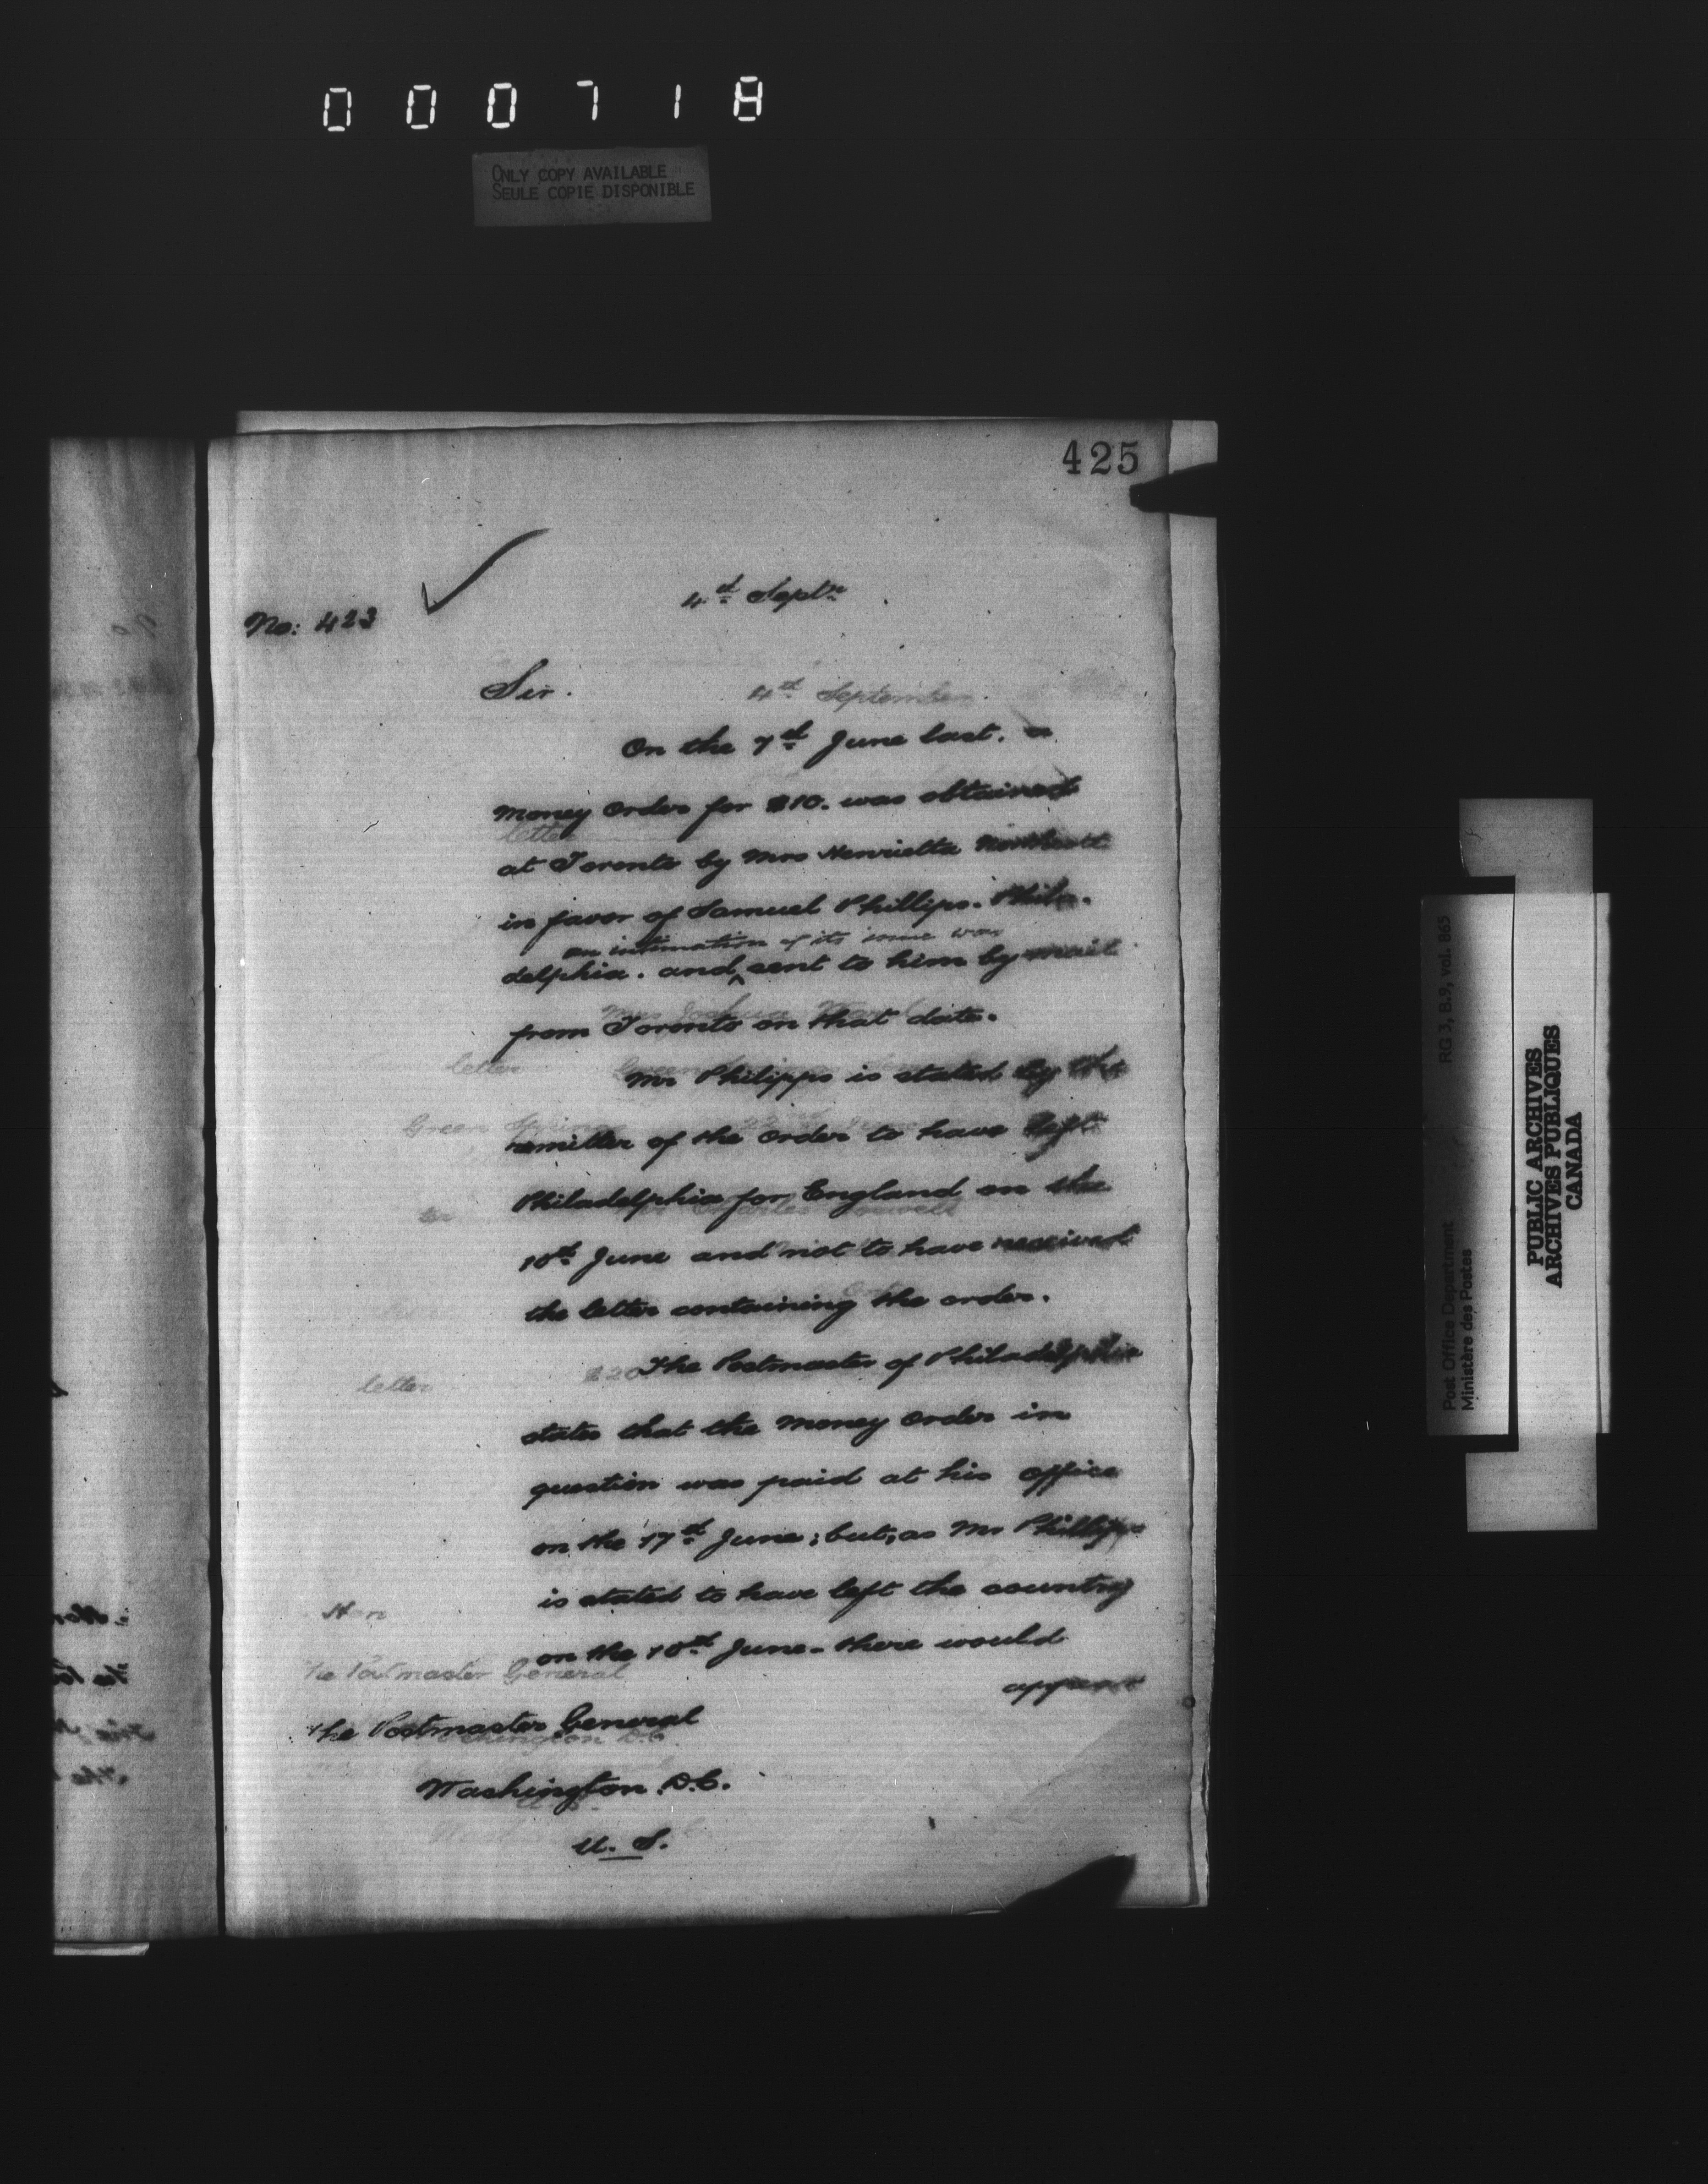 000718
ONLY COPY AVAILABLE
SEULE COPIE DISPONIBLE
425
No: 423
4th Septr
Sir.
4th September
On the 7th June last. a
money order for $10. was obtained
letter
at Toronto by Mrs Henrietta
in favor of Samuel Phillips. Phila-
an intimation of its issue was
delphia. and ^ sent to him by mail
from Toronto on that date.
letter
Mr Philipps is stated by the
Green
remitter of the order to have left
Philadelphia for England on the
10th June and not to have received
the letter containing the order.
The Postmaster of Philadelphia
letter
$20
states that the money order in
question was paid at his office
on the 17th June; but, as Mr Phillips
is stated to have left the country
Hon
on the 10th June - there would
The Postmaster General
appear
The Postmaster General
Washington D.C.
U. S.
RG 3, B.9, vol. 865
Post Office Department
Ministère des Postes
PUBLIC ARCHIVES
ARCHIVES PUBLIQUES
CANADA